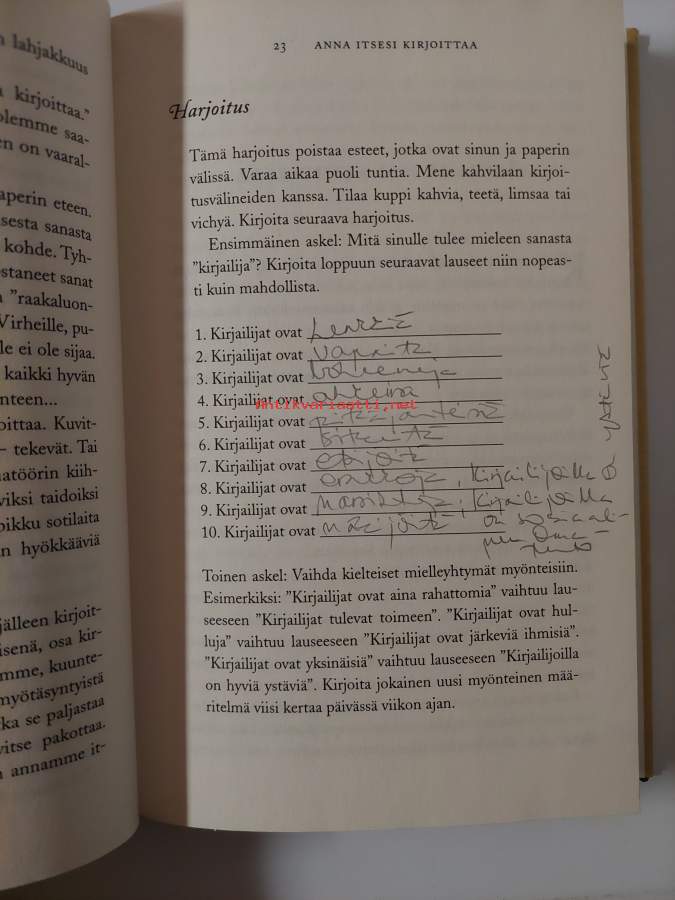 n lahjakkuus
kirjoittaa."
olemme saa-
en on vaaral-
aperin eteen.
sesta sanasta
kohde. Tyh-
ostaneet sanat
"raakaluon-
Virheille, pu-
le ei ole sijaa.
kaikki hyvän
nteen...
oittaa. Kuvit-
– tekevät. Tai
natöörin kiih-
viksi taidoiksi
pikku sotilaita
n hyökkääviä
jälleen kirjoit-
isenä, osa kir-
mme, kuunte-
myötäsyntyistä
ka se paljastaa
vitse pakottaa.
n annamme it-
23 ANNA ITSESI KIRJOITTAA
Harjoitus
Tämä harjoitus poistaa esteet, jotka ovat sinun ja paperin
välissä. Varaa aikaa puoli tuntia. Mene kahvilaan kirjoi-
tusvälineiden kanssa. Tilaa kuppi kahvia, teetä, limsaa tai
vichyä. Kirjoita seuraava harjoitus.
Ensimmäinen askel: Mitä sinulle tulee mieleen sanasta
"kirjailija"? Kirjoita loppuun seuraavat lauseet niin nopeas-
ti kuin mahdollista.
1. Kirjailijat ovat
2. Kirjailijat ovat vapaita
3. Kirjailijat ovat boheemeja
4. Kirjailijat ovat ahkeria
Antikvariaatti.net
5. Kirjailijat ovat pitkäjänteisiä
6. Kirjailijat ovat
7. Kirjailijat ovat etsijöitä
8. Kirjailijat ovat Kirjailijoilla
9. Kirjailijat ovat Kirjailijoilla
10. Kirjailijat ovat näkijöitä on sosiaali-
nen oma-
tunto
Toinen askel: Vaihda kielteiset mielleyhtymät myönteisiin.
Esimerkiksi: "Kirjailijat ovat aina rahattomia" vaihtuu lau-
seeseen "Kirjailijat tulevat toimeen". "Kirjailijat ovat hul-
luja" vaihtuu lauseeseen "Kirjailijat ovat järkeviä ihmisiä".
"Kirjailijat ovat yksinäisiä" vaihtuu lauseeseen "Kirjailijoilla
on hyviä ystäviä". Kirjoita jokainen uusi myönteinen mää-
ritelmä viisi kertaa päivässä viikon ajan.